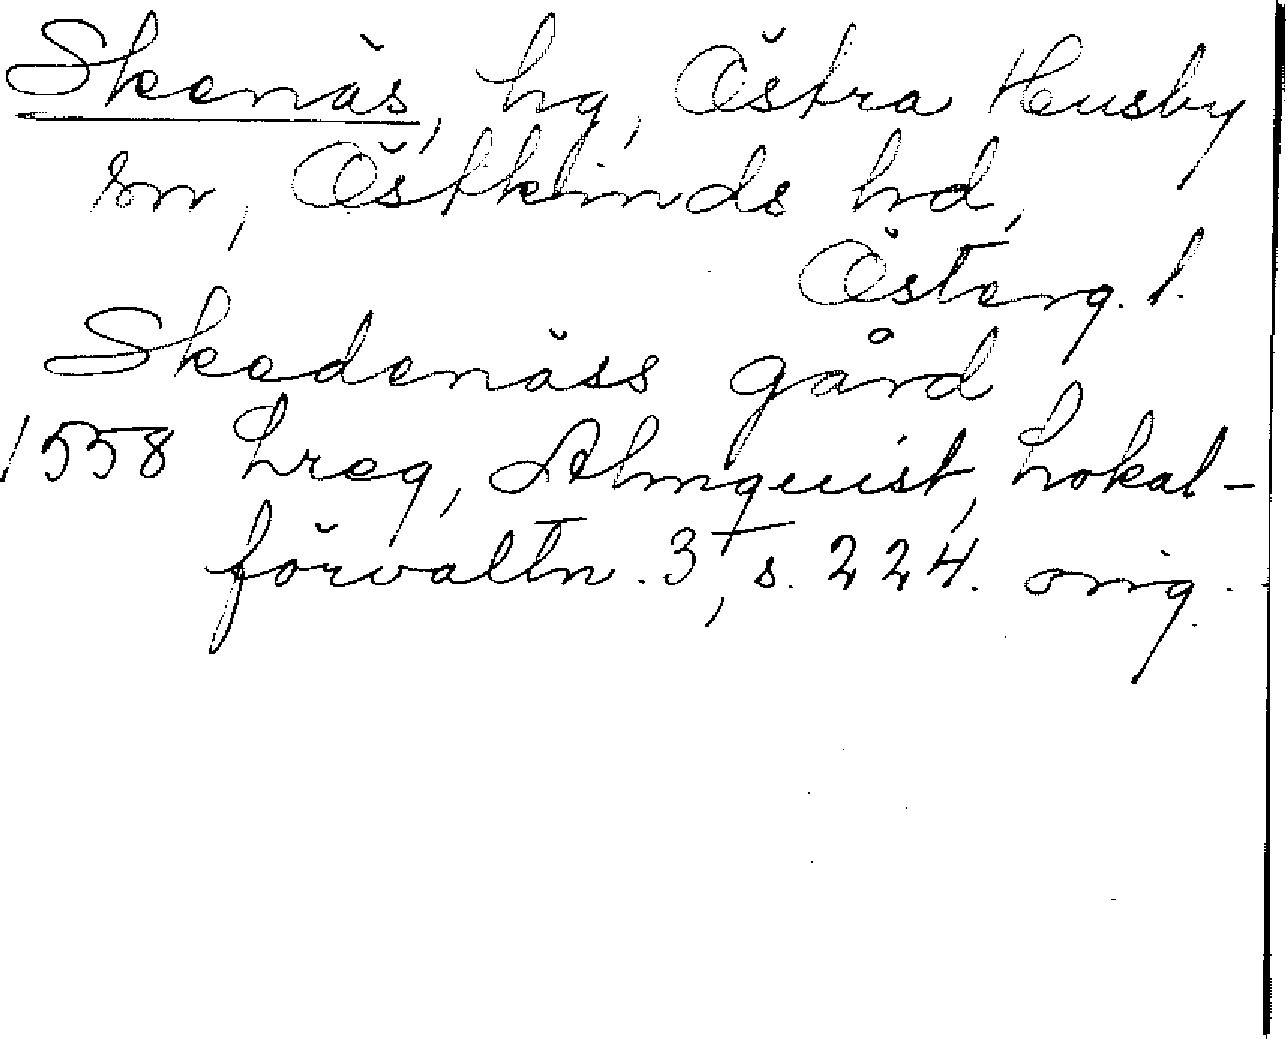 Skenäs, hg, Östra Husby
sn, Östkinds hd,
Österg. l.
Skedenäss gård
1558 Lreg, Almquist, Lokal-
förvaltn. 3, s. 224. orig.